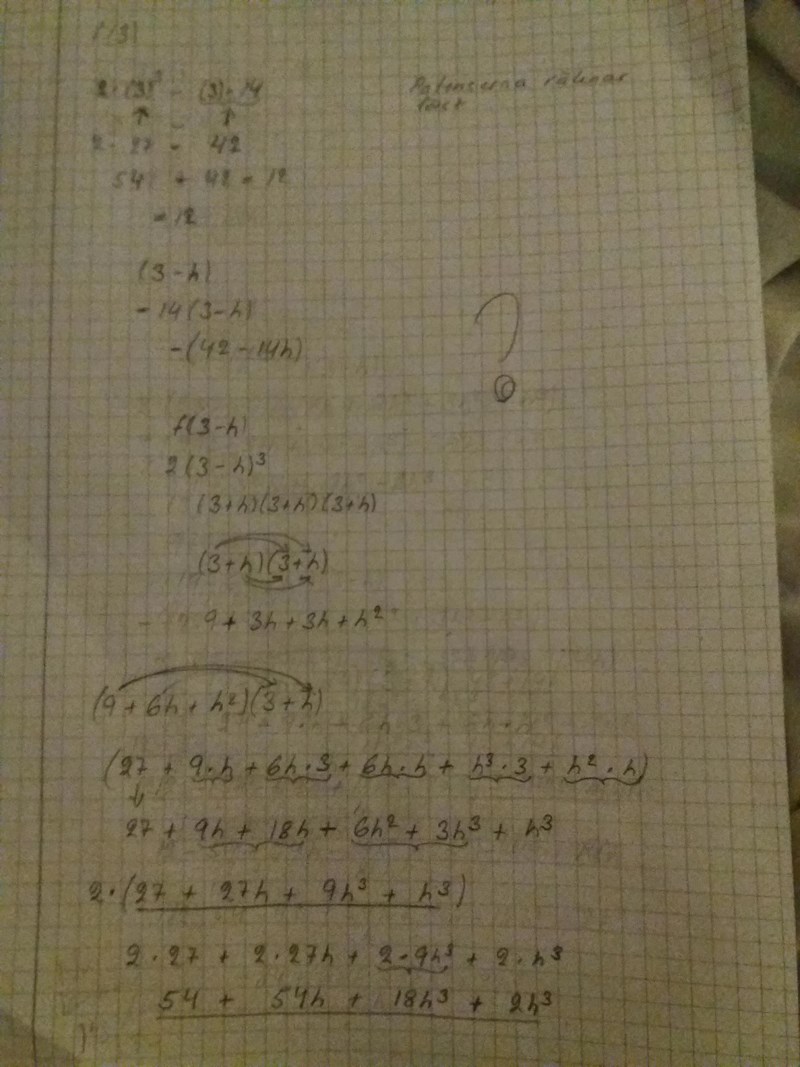 f(3)
2·(3)³ - (3)·14 Potenserna räknas först
↑ ↑
2·27 - 42
54 + 42 = 12
= 12
(3-h)
-14(3-h)
-(42-14h)
?
f(3-h)
2(3-h)³
(3+h)(3+h)(3+h)
(3+h)(3+h)
9+3h+3h+h²
(9+6h+h²)(3+h)
(27 + 9·h + 6h·3 + 6h·h + h³·3 + h²·h)
27 + 9h + 18h + 6h² + 3h³ + h³
2·(27 + 27h + 9h³ + h³)
2·27 + 2·27h + 2·9h³ + 2·h³
54 + 54h + 18h³ + 2h³